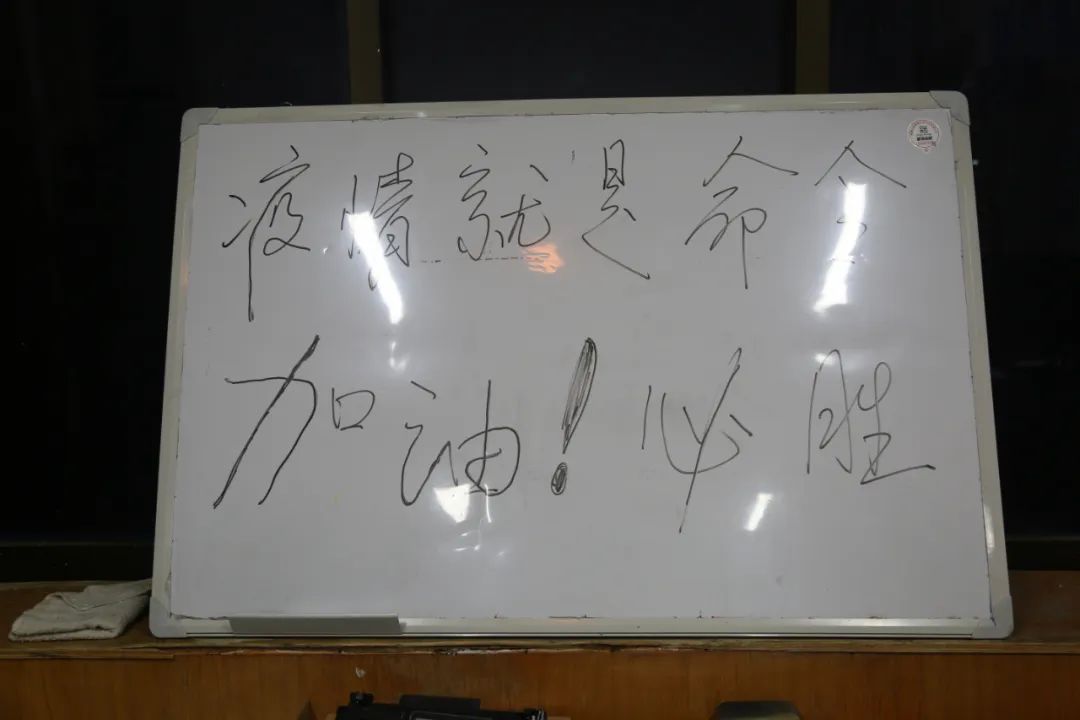 疫情就是命令
加油!必胜